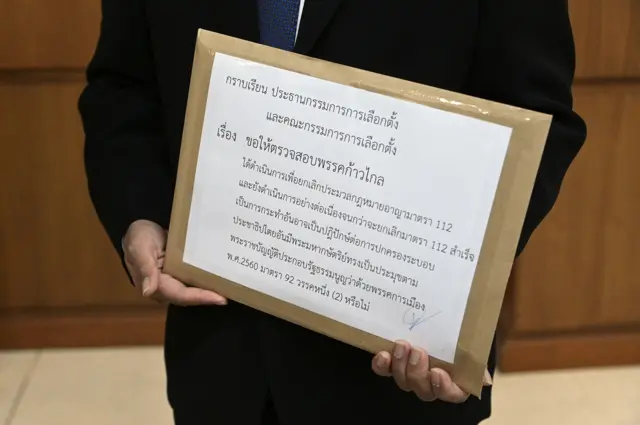 กราบเรียน ประธานกรรมการการเลือกตั้ง
และคณะกรรมการการเลือกตั้ง
เรื่อง ขอให้ตรวจสอบพรรคก้าวไกล
ได้ดำเนินการเพื่อยกเลิกประมวลกฎหมายอาญามาตรา 112
และยังดำเนินการอย่างต่อเนื่องจนกว่าจะยกเลิกมาตรา 112 สำเร็จ
เป็นการกระทำอันอาจเป็นปฏิปักษ์ต่อการปกครองระบอบ
ประชาธิปไตยอันมีพระมหากษัตริย์ทรงเป็นประมุขตาม
พระราชบัญญัติประกอบรัฐธรรมนูญว่าด้วยพรรคการเมือง
พ.ศ.2560 มาตรา 92 วรรคหนึ่ง (2) หรือไม่